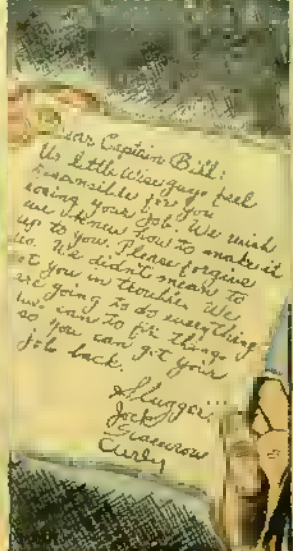 Dear Captain Bill:
Us little wise guys feel
responsible for you
losing your job. We wish
we knew how to make it
up to you. Please forgive
us. We didn't mean to
get you in trouble. We
are going to do everything
we can to fix things
so you can get your
job back.
Slugger
Jock
Scarecrow
Curly